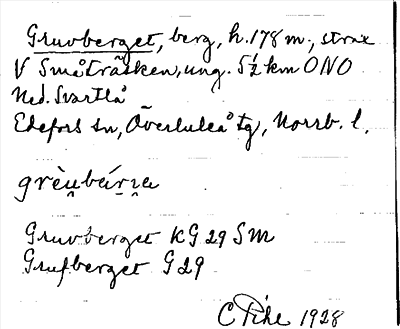 Gruvberget, berg, h. 178 m., strax
V Småträsken, ung. 5½ km ONO
Ned. Svartlå
Edefors sn, Överluleå tg, Norrb. l.
grèu̯bár̯i̯a
Gruvberget KG 29 SM
Grufberget G 29
C Pihl 1928